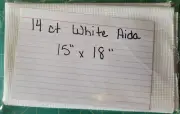 14 ct White Aida
15" x 18"